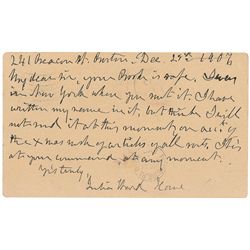 241 Beacon St. Boston, Dec. 25th 1906
My dear sir, your Book is safe. I was
in New York when you sent it. I have
written my name in it, but think I will
not send it at this moment on acct. of
the Xmas rush of articles of all sorts. It is
at your command at any moment.
Yrs truly
Julia Ward Howe